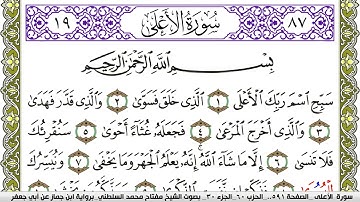 ٨٧ سُورَةُ الأَعْلَى ١٩
بِسْمِ اللَّهِ الرَّحْمَٰنِ الرَّحِيمِ
سَبِّحِ اسْمَ رَبِّكَ الْأَعْلَى ١ الَّذِي خَلَقَ فَسَوَّىٰ ٢ وَالَّذِي قَدَّرَ فَهَدَىٰ
٣ وَالَّذِي أَخْرَجَ الْمَرْعَىٰ ٤ فَجَعَلَهُ غُثَاءً أَحْوَىٰ ٥ سَنُقْرِئُكَ
فَلَا تَنسَىٰ ٦ إِلَّا مَا شَاءَ اللَّهُ إِنَّهُ يَعْلَمُ الْجَهْرَ وَمَا يَخْفَىٰ ٧ وَنُيَسِّرُكَ
سورة الأعلى الصفحة ٥٩١... الحزب ٦٠ الجزء ٣٠ بصوت الشيخ مفتاح محمد السلطني برواية ابن جماز عن أبي جعفر